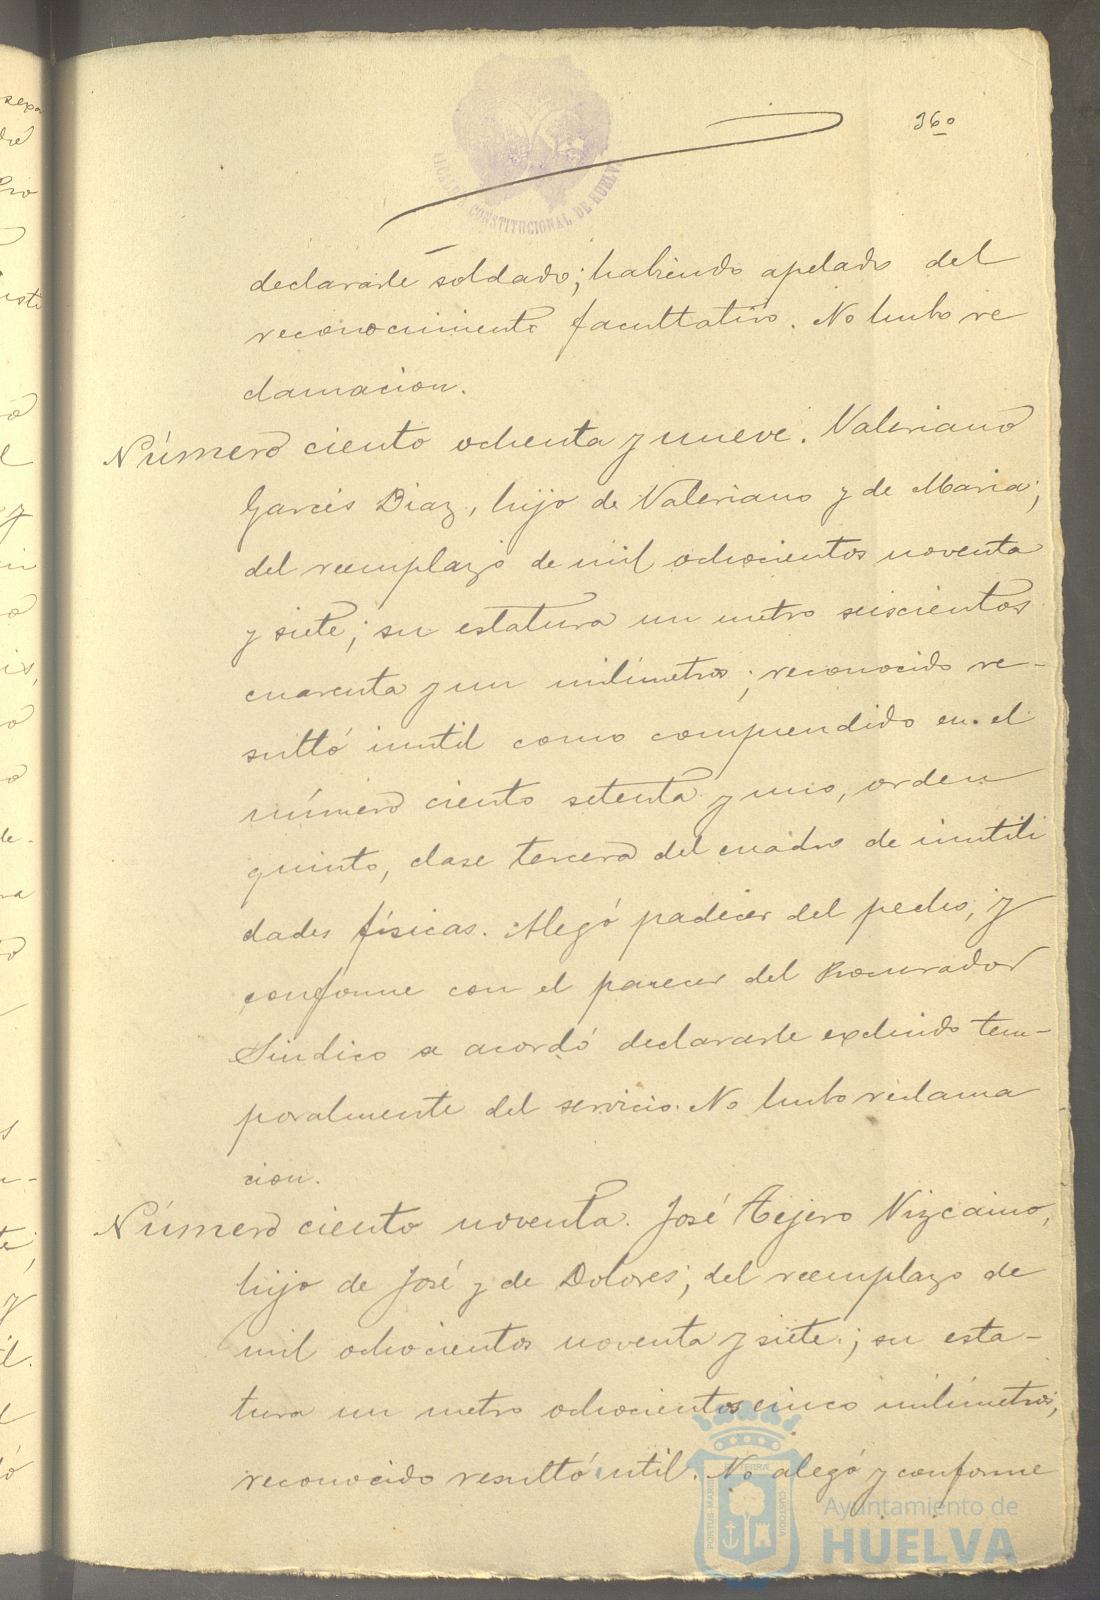 36º
CONSTITUCIONAL DE HUELVA
declararle soldado; habiendo apelado del
reconocimiento facultativo. No hubo re
clamacion.
Número ciento ochenta y nueve. Valeriano
Garcés Diaz, hijo de Valeriano y de Maria;
del reemplazo de mil ochocientos noventa
y siete; su estatura un metro seiscientos
cuarenta y un milímetros; reconocido re-
sultó inutil como comprendido en el
número ciento setenta y uno, orden
quinto, clase tercera del cuadro de inutili
dades físicas. Alegó padecer del pecho, y
conforme con el parecer del Procurador
Sindico se acordó declararle excluido tem-
poralmente del servicio. No hubo reclama
cion.
Número ciento noventa. José Tejero Vizcaino,
hijo de José y de Dolores; del reemplazo de
mil ochocientos noventa y siete; su esta-
tura un metro ochocientos cinco milímetros;
reconocido resultó util. No alegó y conforme
PORTUS MARIS
TERRAE
CUSTODIA
Ayuntamiento de
HUELVA